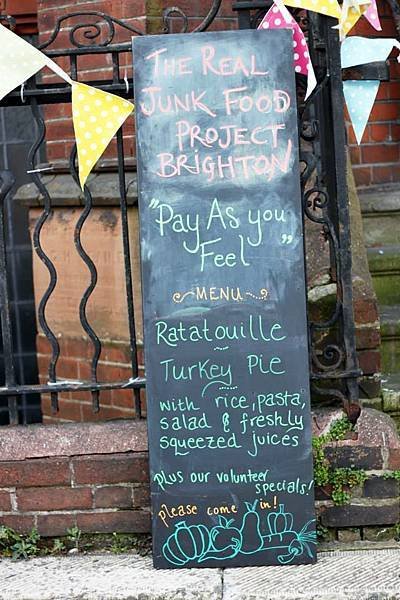 The Real
Junk Food
Project
Brighton
"Pay As you
Feel"
Menu
Ratatouille
Turkey Pie
with rice, pasta,
salad & freshly
squeezed juices
plus our volunteer
specials!
please come in!